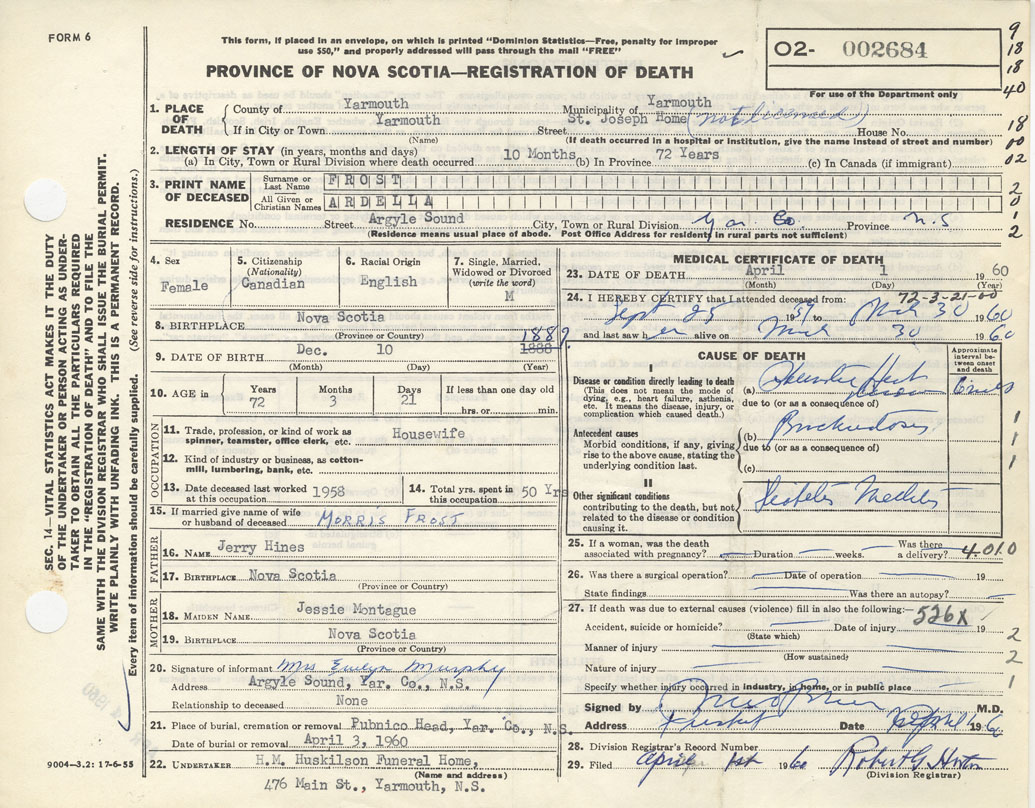 FORM 6
This form, if placed in an envelope, on which is printed "Dominion Statistics—Free, penalty for improper
use $50," and properly addressed will pass through the mail "FREE"
PROVINCE OF NOVA SCOTIA—REGISTRATION OF DEATH
O2- 002684
For use of the Department only
9
18
18
40
18
00
02
2
0
1
2
1. PLACE OF DEATH
County of Yarmouth Municipality of Yarmouth
If in City or Town Yarmouth Street St. Joseph Home (not licensed) House No.
(Name) (If death occurred in a hospital or institution, give the name instead of street and number)
2. LENGTH OF STAY (in years, months and days)
(a) In City, Town or Rural Division where death occurred 10 Months (b) In Province 72 Years (c) In Canada (if immigrant)
3. PRINT NAME OF DECEASED
Surname or Last Name FROST
All Given or Christian Names ARDELLA
RESIDENCE No. Street Argyle Sound City, Town or Rural Division Yar. Co. Province N.S
(Residence means usual place of abode. Post Office Address for residents in rural parts not sufficient)
4. Sex Female
5. Citizenship (Nationality) Canadian
6. Racial Origin English
7. Single, Married, Widowed or Divorced (write the word) M
8. BIRTHPLACE Nova Scotia
(Province or Country)
9. DATE OF BIRTH Dec. 10 1888 1887
(Month) (Day) (Year)
10. AGE in Years 72 Months 3 Days 21 If less than one day old hrs. or min.
OCCUPATION
11. Trade, profession, or kind of work as spinner, teamster, office clerk, etc. Housewife
12. Kind of industry or business, as cotton-mill, lumbering, bank, etc.
13. Date deceased last worked at this occupation 1958
14. Total yrs. spent in this occupation 50 Yrs
15. If married give name of wife or husband of deceased MORRIS FROST
FATHER
16. NAME Jerry Hines
17. BIRTHPLACE Nova Scotia
(Province or Country)
MOTHER
18. MAIDEN NAME Jessie Montague
19. BIRTHPLACE Nova Scotia
(Province or Country)
20. Signature of informant Mrs Evelyn Murphy
Address Argyle Sound, Yar. Co., N.S.
Relationship to deceased None
21. Place of burial, cremation or removal Pubnico Head, Yar. Co., N.S.
Date of burial or removal April 3, 1960
22. UNDERTAKER H.M. Huskilson Funeral Home,
(Name and address)
476 Main St., Yarmouth, N.S.
MEDICAL CERTIFICATE OF DEATH
23. DATE OF DEATH April 1 1960
(Month) (Day) (Year)
72-3-21-00
24. I HEREBY CERTIFY that I attended deceased from:
Sept 25 1957 to Mch 30 1960
and last saw her alive on Mch 30 1960
CAUSE OF DEATH
Approximate interval between onset and death
I
Disease or condition directly leading to death
(This does not mean the mode of dying, e.g., heart failure, asthenia, etc. It means the disease, injury, or complication which caused death.)
(a)
due to (or as a consequence of)
Antecedent causes
Morbid conditions, if any, giving rise to the above cause, stating the underlying condition last.
(b)
due to (or as a consequence of)
(c)
1
1
1
II
Other significant conditions
contributing to the death, but not related to the disease or condition causing it.
Diabetes
25. If a woman, was the death associated with pregnancy? Duration weeks. Was there a delivery? 4.010
26. Was there a surgical operation? Date of operation 19
State findings Was there an autopsy?
27. If death was due to external causes (violence) fill in also the following:—
526X
Accident, suicide or homicide? Date of injury 19
(State which)
Manner of injury
(How sustained)
Nature of injury
Specify whether injury occurred in industry, in home, or in public place
2
2
1
Signed by M.D.
Address Date April 1 1960
28. Division Registrar's Record Number
29. Filed April 1st 1960 Robert G Horton
(Division Registrar)
SEC. 14—VITAL STATISTICS ACT MAKES IT THE DUTY
OF THE UNDERTAKER OR PERSON ACTING AS UNDER-
TAKER TO OBTAIN ALL THE PARTICULARS REQUIRED
IN THE "REGISTRATION OF DEATH" AND TO FILE THE
SAME WITH THE DIVISION REGISTRAR WHO SHALL ISSUE THE BURIAL PERMIT.
WRITE PLAINLY WITH UNFADING INK. THIS IS A PERMANENT RECORD.
Every item of information should be carefully supplied. (See reverse side for instructions.)
9004—3.2: 17-6-55